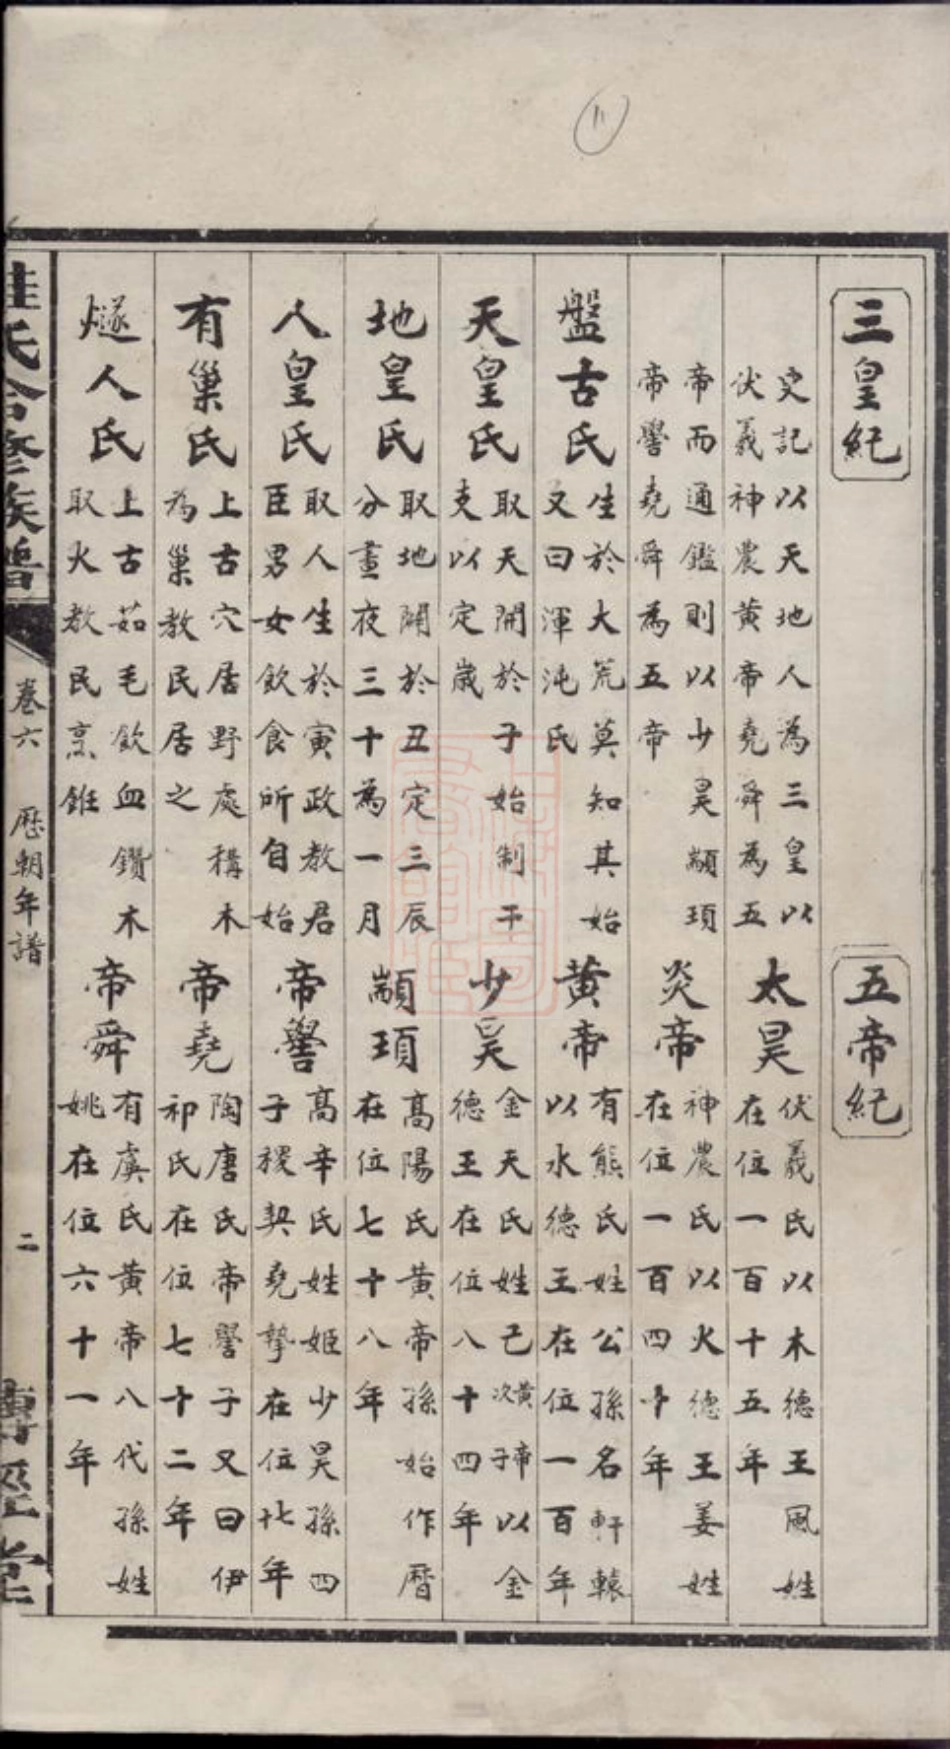 三皇紀
史記以天地人為三皇以
伏羲神農黃帝堯舜為五
帝而通鑑則以少昊顓頊
帝嚳堯舜為五帝
盤古氏
生於大荒莫知其始
又曰渾沌氏
天皇氏
取天開於子始制干
支以定歲
地皇氏
取地開於丑定三辰
分晝夜三十為一月
人皇氏
取人生於寅政教君
臣男女飲食所自始
有巢氏
上古穴居野處構木
為巢教民居之
燧人氏
上古茹毛飲血鑽木
取火教民烹飪
五帝紀
太昊
伏羲氏以木德王風姓
在位一百十五年
炎帝
神農氏以火德王姜姓
在位一百四十年
黃帝
有熊氏姓公孫名軒轅
以水德王在位一百年
少昊
金天氏姓己黃帝次子以金
德王在位八十四年
顓頊
高陽氏黃帝孫始作曆
在位七十八年
帝嚳
高辛氏姓姬少昊孫四
子稷契堯摯在位七十年
帝堯
陶唐氏帝嚳子又曰伊
祁氏在位七十二年
帝舜
有虞氏黃帝八代孫姓
姚在位六十一年
氏合修族譜
卷六
歷朝年譜
二
經堂